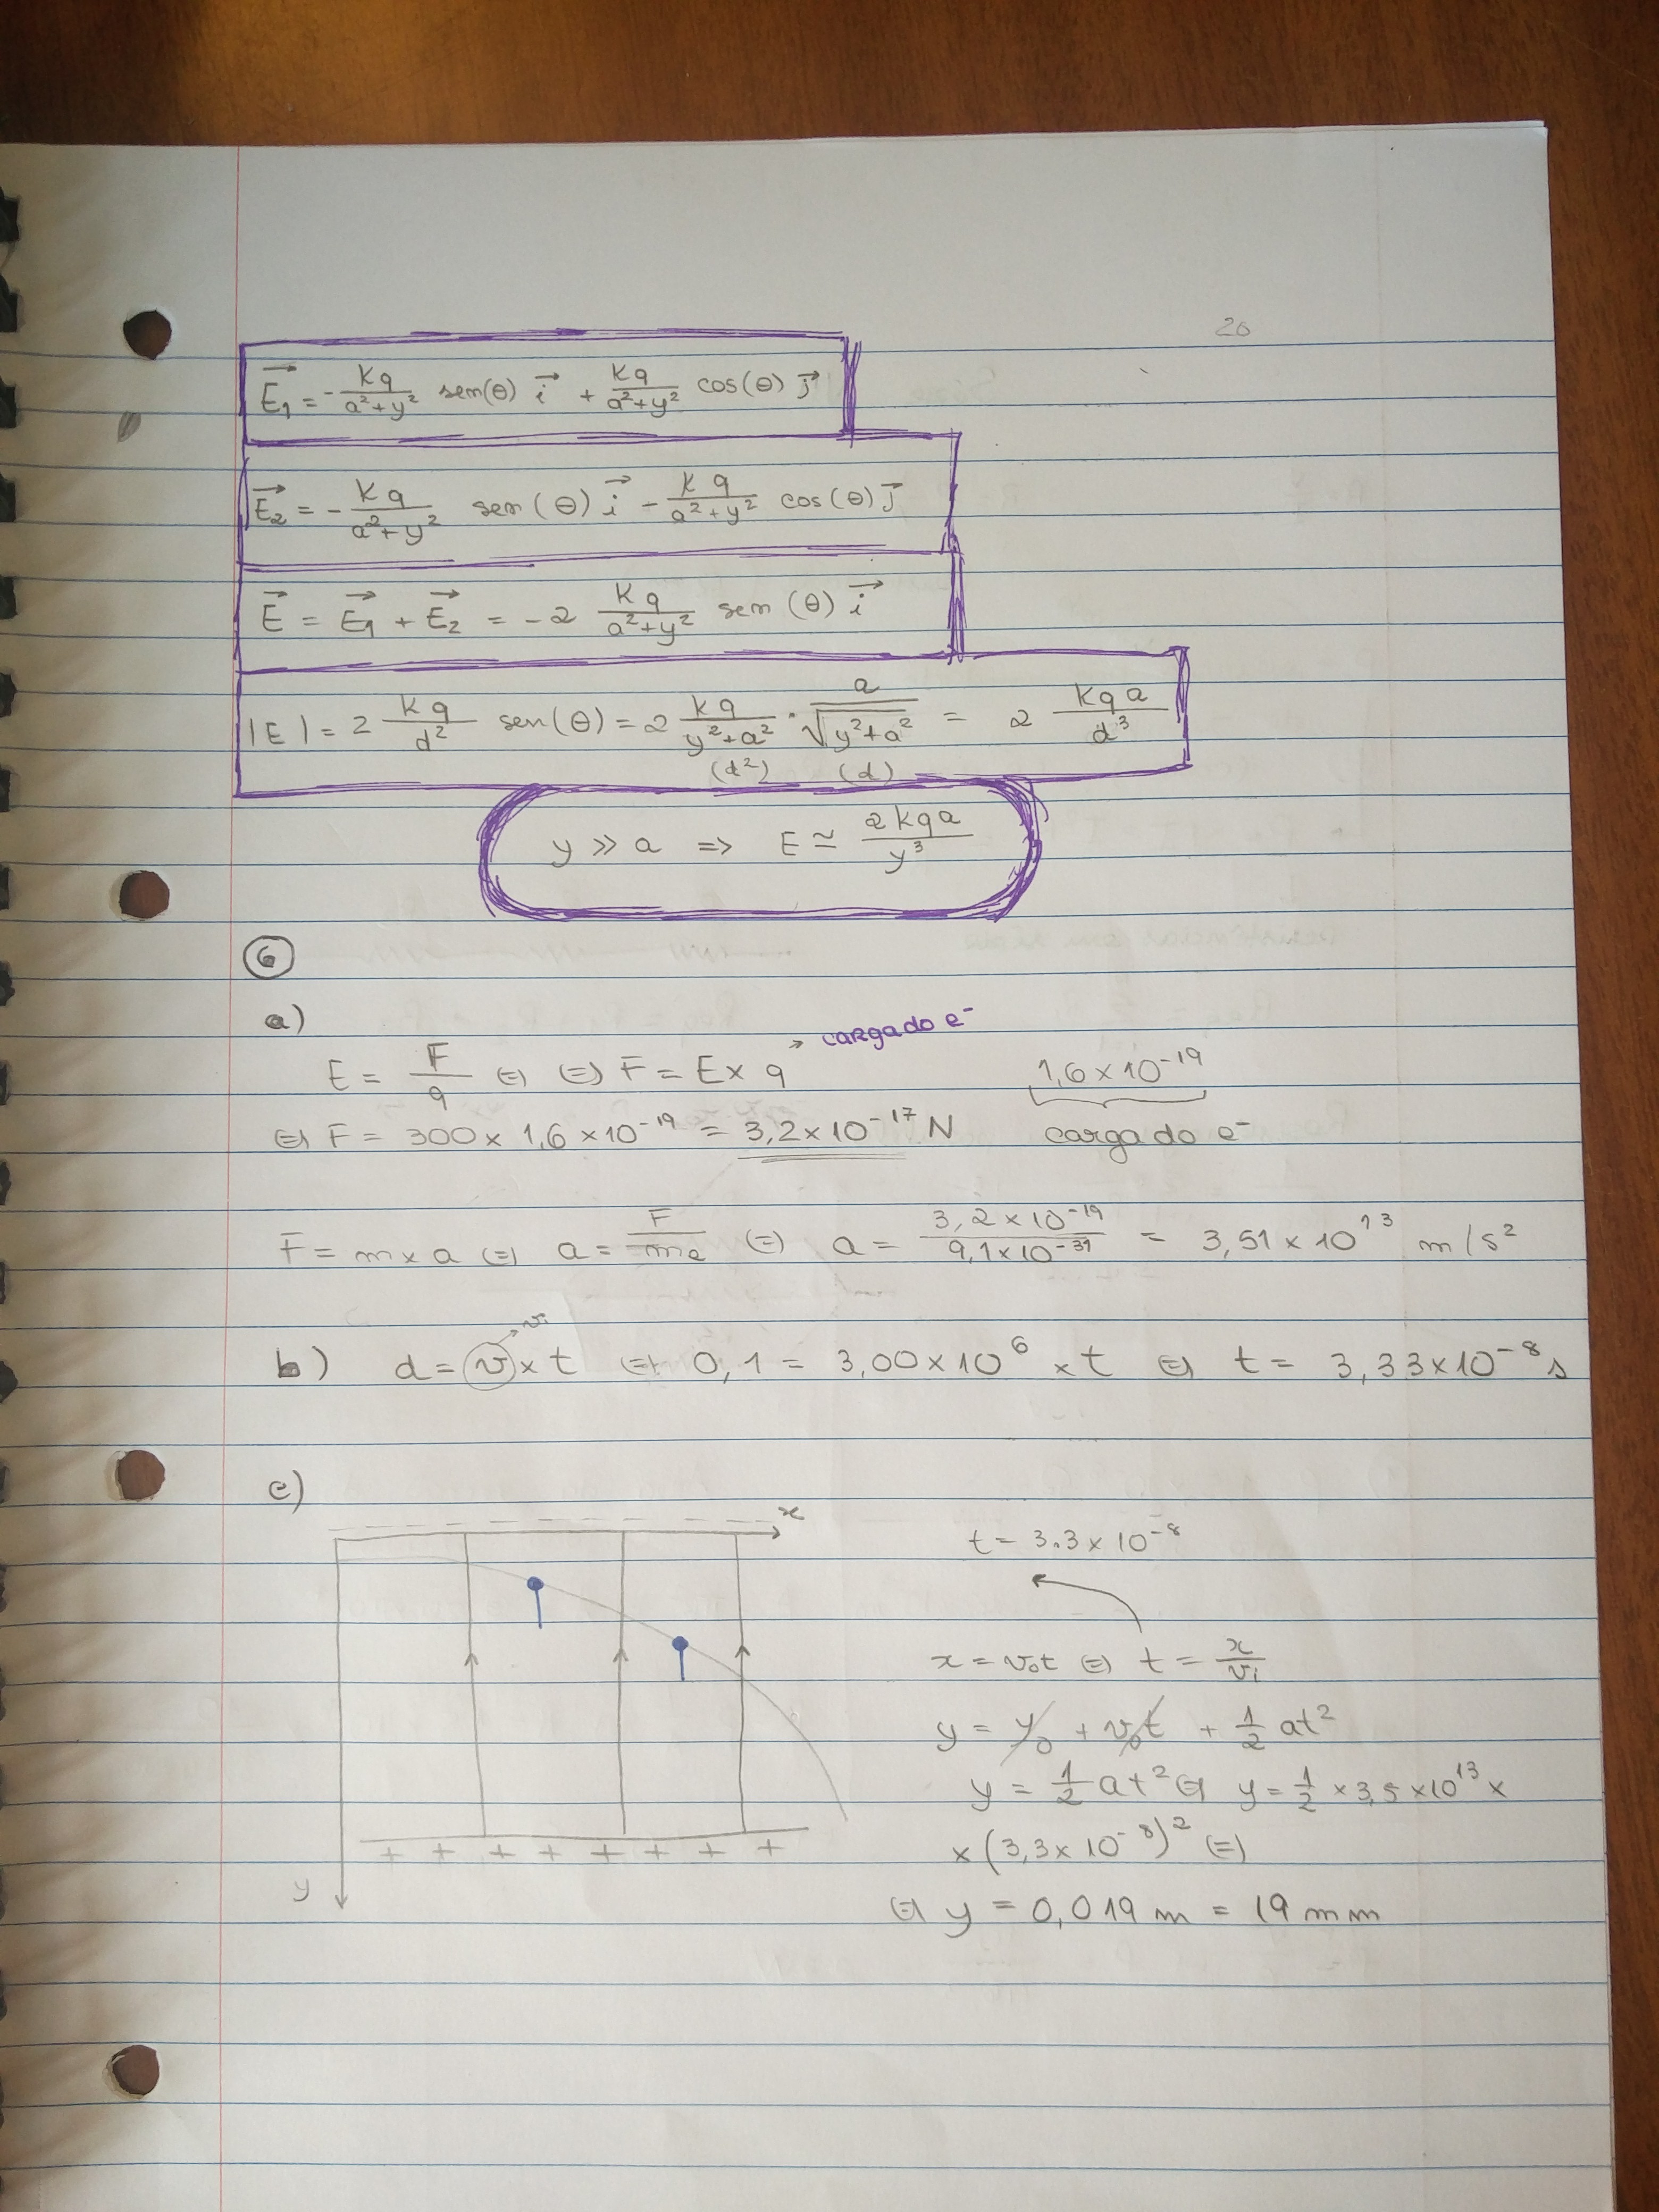 20
E₁ = - kq/(a²+y²) sen(θ) i + kq/(a²+y²) cos(θ) j
E₂ = - kq/(a²+y²) sen(θ) i - kq/(a²+y²) cos(θ) j
E = E₁ + E₂ = -2 kq/(a²+y²) sen(θ) i
|E| = 2 kq/d² sen(θ) = 2 kq/(y²+a²) · a/√(y²+a²) = 2 kqa/d³
(d²) (d)
y >> a => E ≃ 2kqa/y³
6
a)
→ carga do e⁻
E = F/q (=) (=) F = E × q
1,6×10⁻¹⁹
(=) F = 300 × 1,6 × 10⁻¹⁹ = 3,2×10⁻¹⁷ N
carga do e⁻
F = m × a (=) a = F/me (=) a = 3,2×10⁻¹⁹/9,1×10⁻³¹ = 3,51 × 10¹³ m/s²
b) d = v × t (=) 0,1 = 3,00×10⁶ × t (=) t = 3,33×10⁻⁸ s
vi
c)
x
t = 3.3 × 10⁻⁸
x = v₀t (=) t = x/vi
y = y₀ + v₀t + 1/2 at²
y = 1/2 at² (=) y = 1/2 × 3,5 × 10¹³ ×
× (3,3 × 10⁻⁸)² (=)
+ + + + + + + +
y
(=) y = 0,019 m = 19 mm